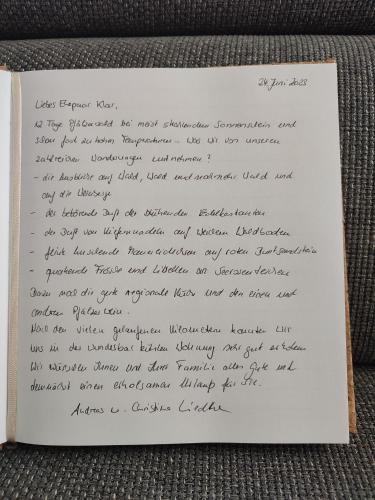 24. Juni 2023
Liebes Ehepaar Klar,
12 Tage Pfälzerwald bei meist strahlendem Sonnenschein und
schon fast zu hohen Temperaturen - was wir von unseren
zahlreichen Wanderungen mitnehmen?
- die Ausblicke auf Wald, Wald und nochmehr Wald und
auf die Weinberge
- der betörende Duft der blühenden Edelkastanien
- der Duft von Kiefernnadeln auf weichem Waldboden
- flink huschende Mauereidechsen auf roten Buntsandstein
- quakende Frösche und Libellen an Seerosenteichen
Dazu noch die gute regionale Küche und den einen und
anderen Pfälzer Wein.
Nach den vielen gelaufenen Kilometern konnten wir
uns in der wunderbar kühlen Wohnung sehr gut erholen.
Wir wünschen Ihnen und Ihrer Familie alles Gute und
demnächst einen erholsamen Urlaub für Sie.
Andreas u. Christina